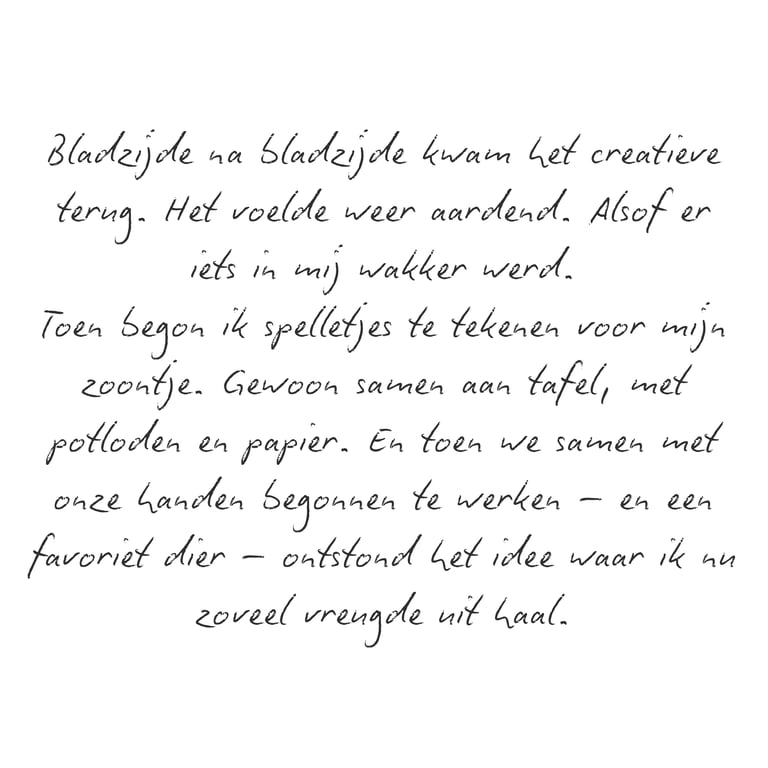 Bladzijde na bladzijde kwam het creatieve
terug. Het voelde weer aardend. Alsof er
iets in mij wakker werd.
Toen begon ik spelletjes te tekenen voor mijn
zoontje. Gewoon samen aan tafel, met
potloden en papier. En toen we samen met
onze handen begonnen te werken – en een
favoriet dier – ontstond het idee waar ik nu
zoveel vreugde uit haal.